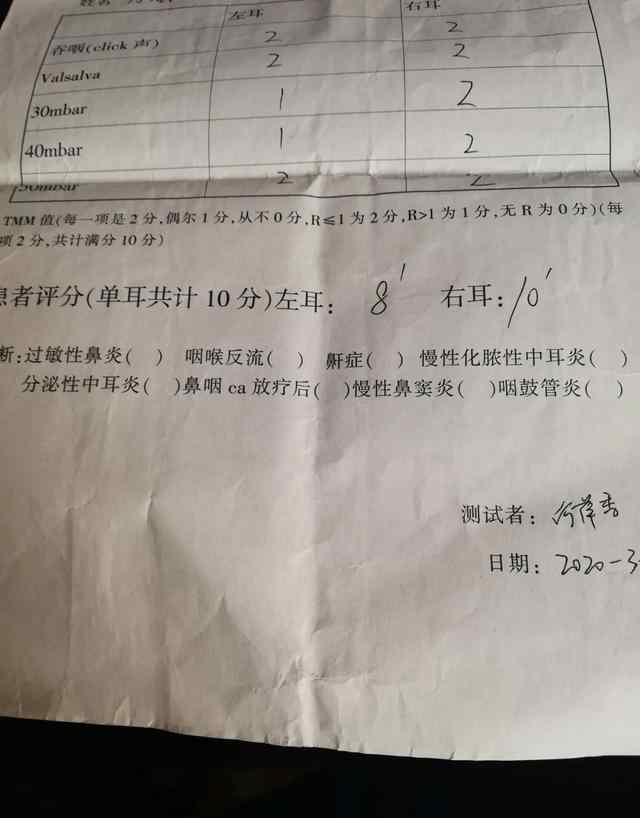 左耳 右耳
吞咽(click 声) 2 2
Valsalva 2 2
30mbar 1 2
40mbar 1 2
50mbar 2 2
TMM 值(每一项是 2 分,偶尔 1 分,从不 0 分,R≤1 为 2 分,R>1 为 1 分,无 R 为 0 分)(每
项 2 分,共计满分 10 分)
患者评分(单耳共计 10 分)左耳: 8' 右耳: 10'
断:过敏性鼻炎( ) 咽喉反流( ) 鼾症( ) 慢性化脓性中耳炎( )
分泌性中耳炎( )鼻咽 ca 放疗后( )慢性鼻窦炎( )咽鼓管炎( )
测试者:
日期: 2020-3-